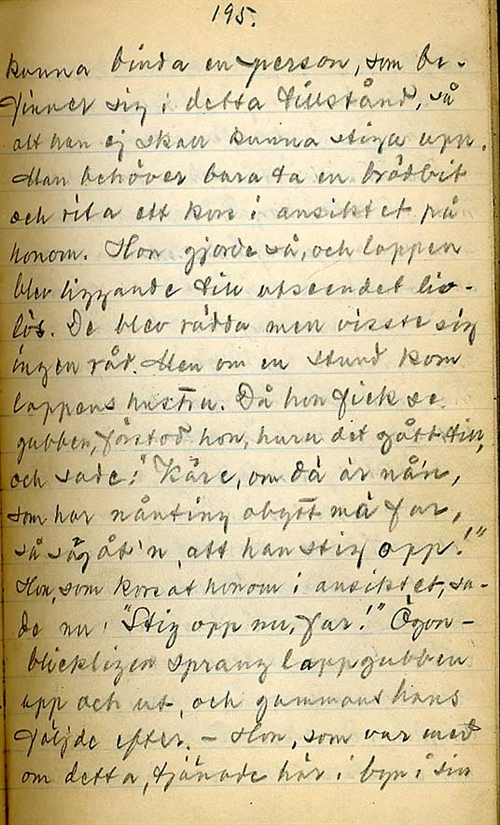 195.
kunna binda en person, som be-
finner sig i detta tillstånd, så
att han ej skall kunna stiga upp.
Man behöver bara ta en brödbit
och rita ett kors i ansiktet på
honom. Hon gjorde så, och lappen
blev liggande till utseendet liv-
lös. De blev rädda men visste sig
ingen råd. Men om en stund kom
lappens hustru. Då hon fick se
gubben, förstod hon, huru det gått till,
och sade: "Käre, om dä är nå'n,
som har nånting obytt mä far,
så säg åt'n, att han stig opp!"
Hon, som korsat honom i ansiktet, sa-
de nu: "Stig opp nu, far!" Ögon-
blickligen sprang lappgubben
upp och ut, och gumman hans
följde efter. - Hon, som var med
om detta, tjänade här i byn i sin